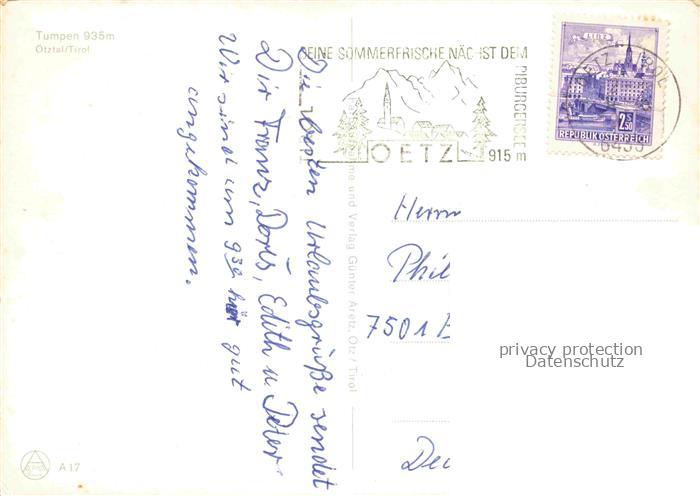 Tumpen 935m
Ötztal/Tirol
SEINE SOMMERFRISCHE NÄCHST DEM
PIBURGERSEE
OETZ
915 m
LINZ
2.50
REPUBLIK ÖSTERREICH
6433
Die besten Urlaubsgrüße sendet
Dir Franz, Doris, Edith u. Peter
Wir sind um 9 30 hier gut
angekommen.
und Verlag Günter Aretz, Ötz / Tirol
Herrn
Phil
7501 E
De
privacy protection
Datenschutz
A 17